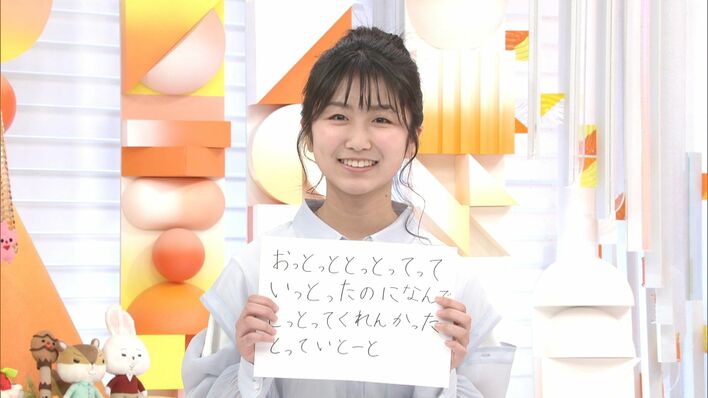 おっとっととっとってって
いっとったのになんで
とっとってくれんかった
とっていとーと